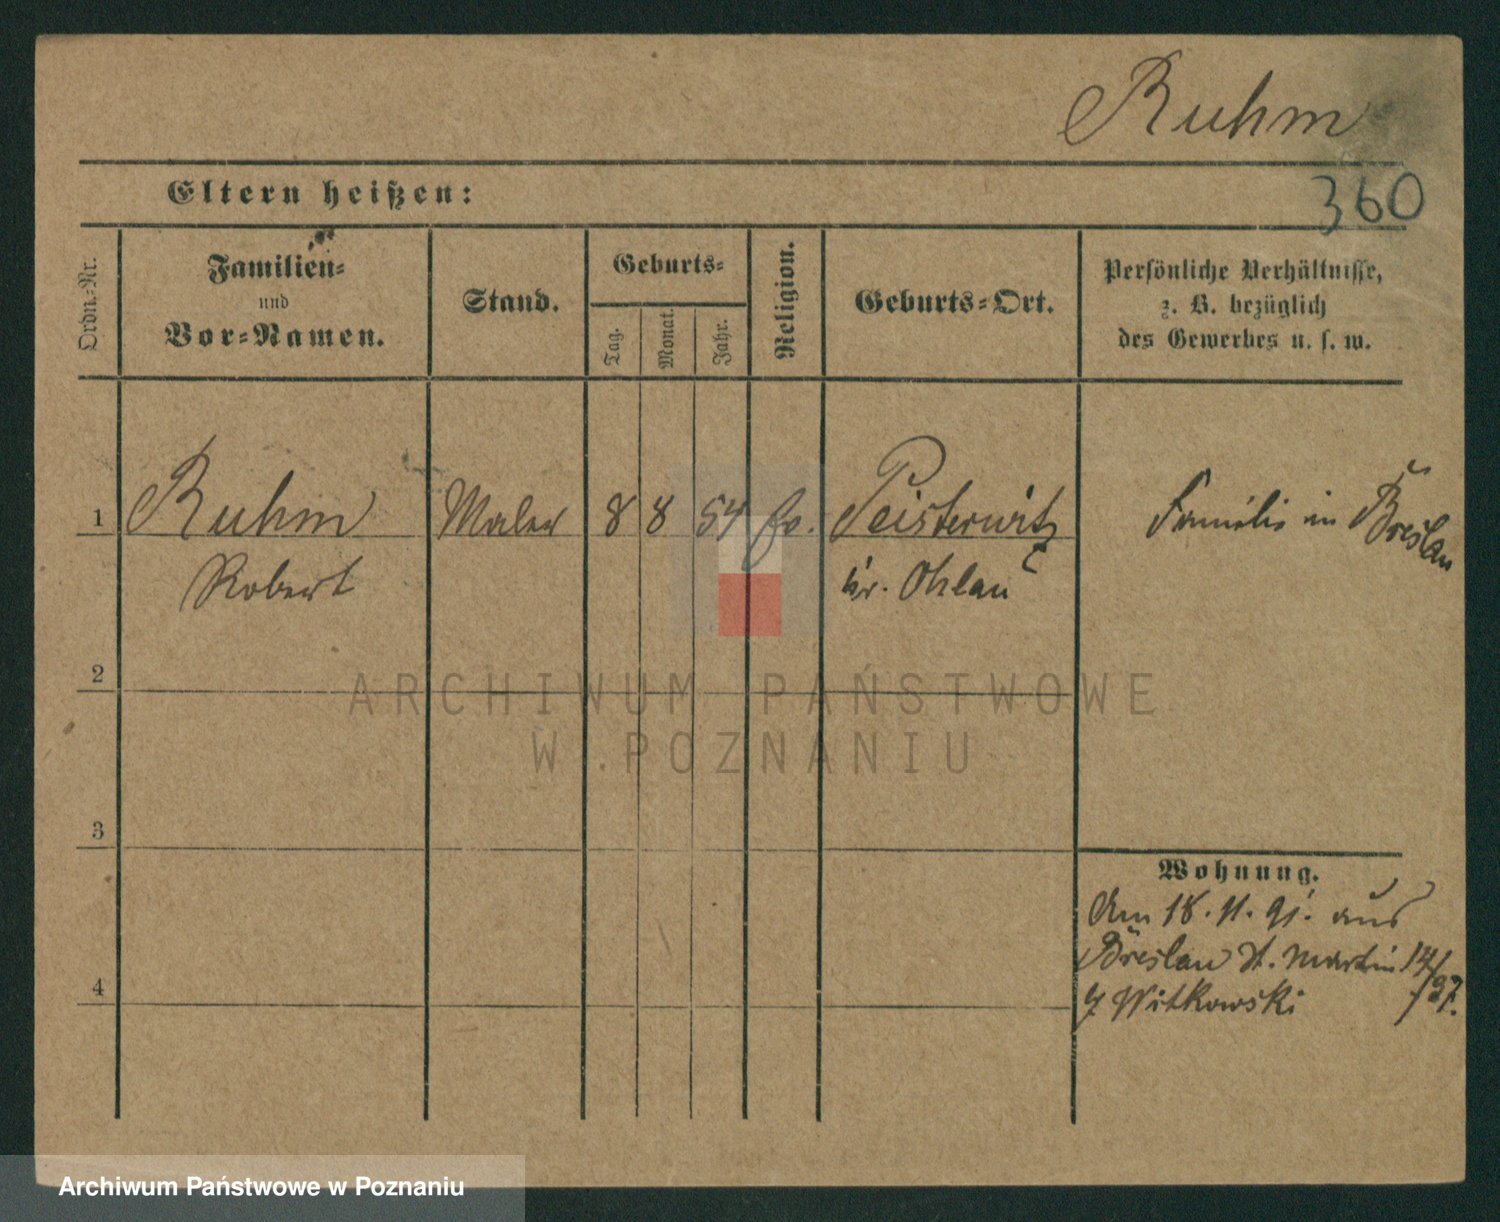 Ruhm
Eltern heißen:
360
Ordn.-Nr.
Familien-
und
Vor-Namen.
Stand.
Geburts-
Tag.
Monat.
Jahr.
Religion.
Geburts-Ort.
Persönliche Verhältnisse,
z. B. bezüglich
des Gewerbes u. s. w.
1 Ruhm Maler 8 8 54 Ev. Peisterwitz Familie in Breslau
Robert Kr. Ohlau
2
ARCHIWUM PAŃSTWOWE
W POZNANIU
3
Wohnung.
Am 18. 11. 91. aus
Breslau St. Martin 14/
4
Witkowski /97.
Archiwum Państwowe w Poznaniu